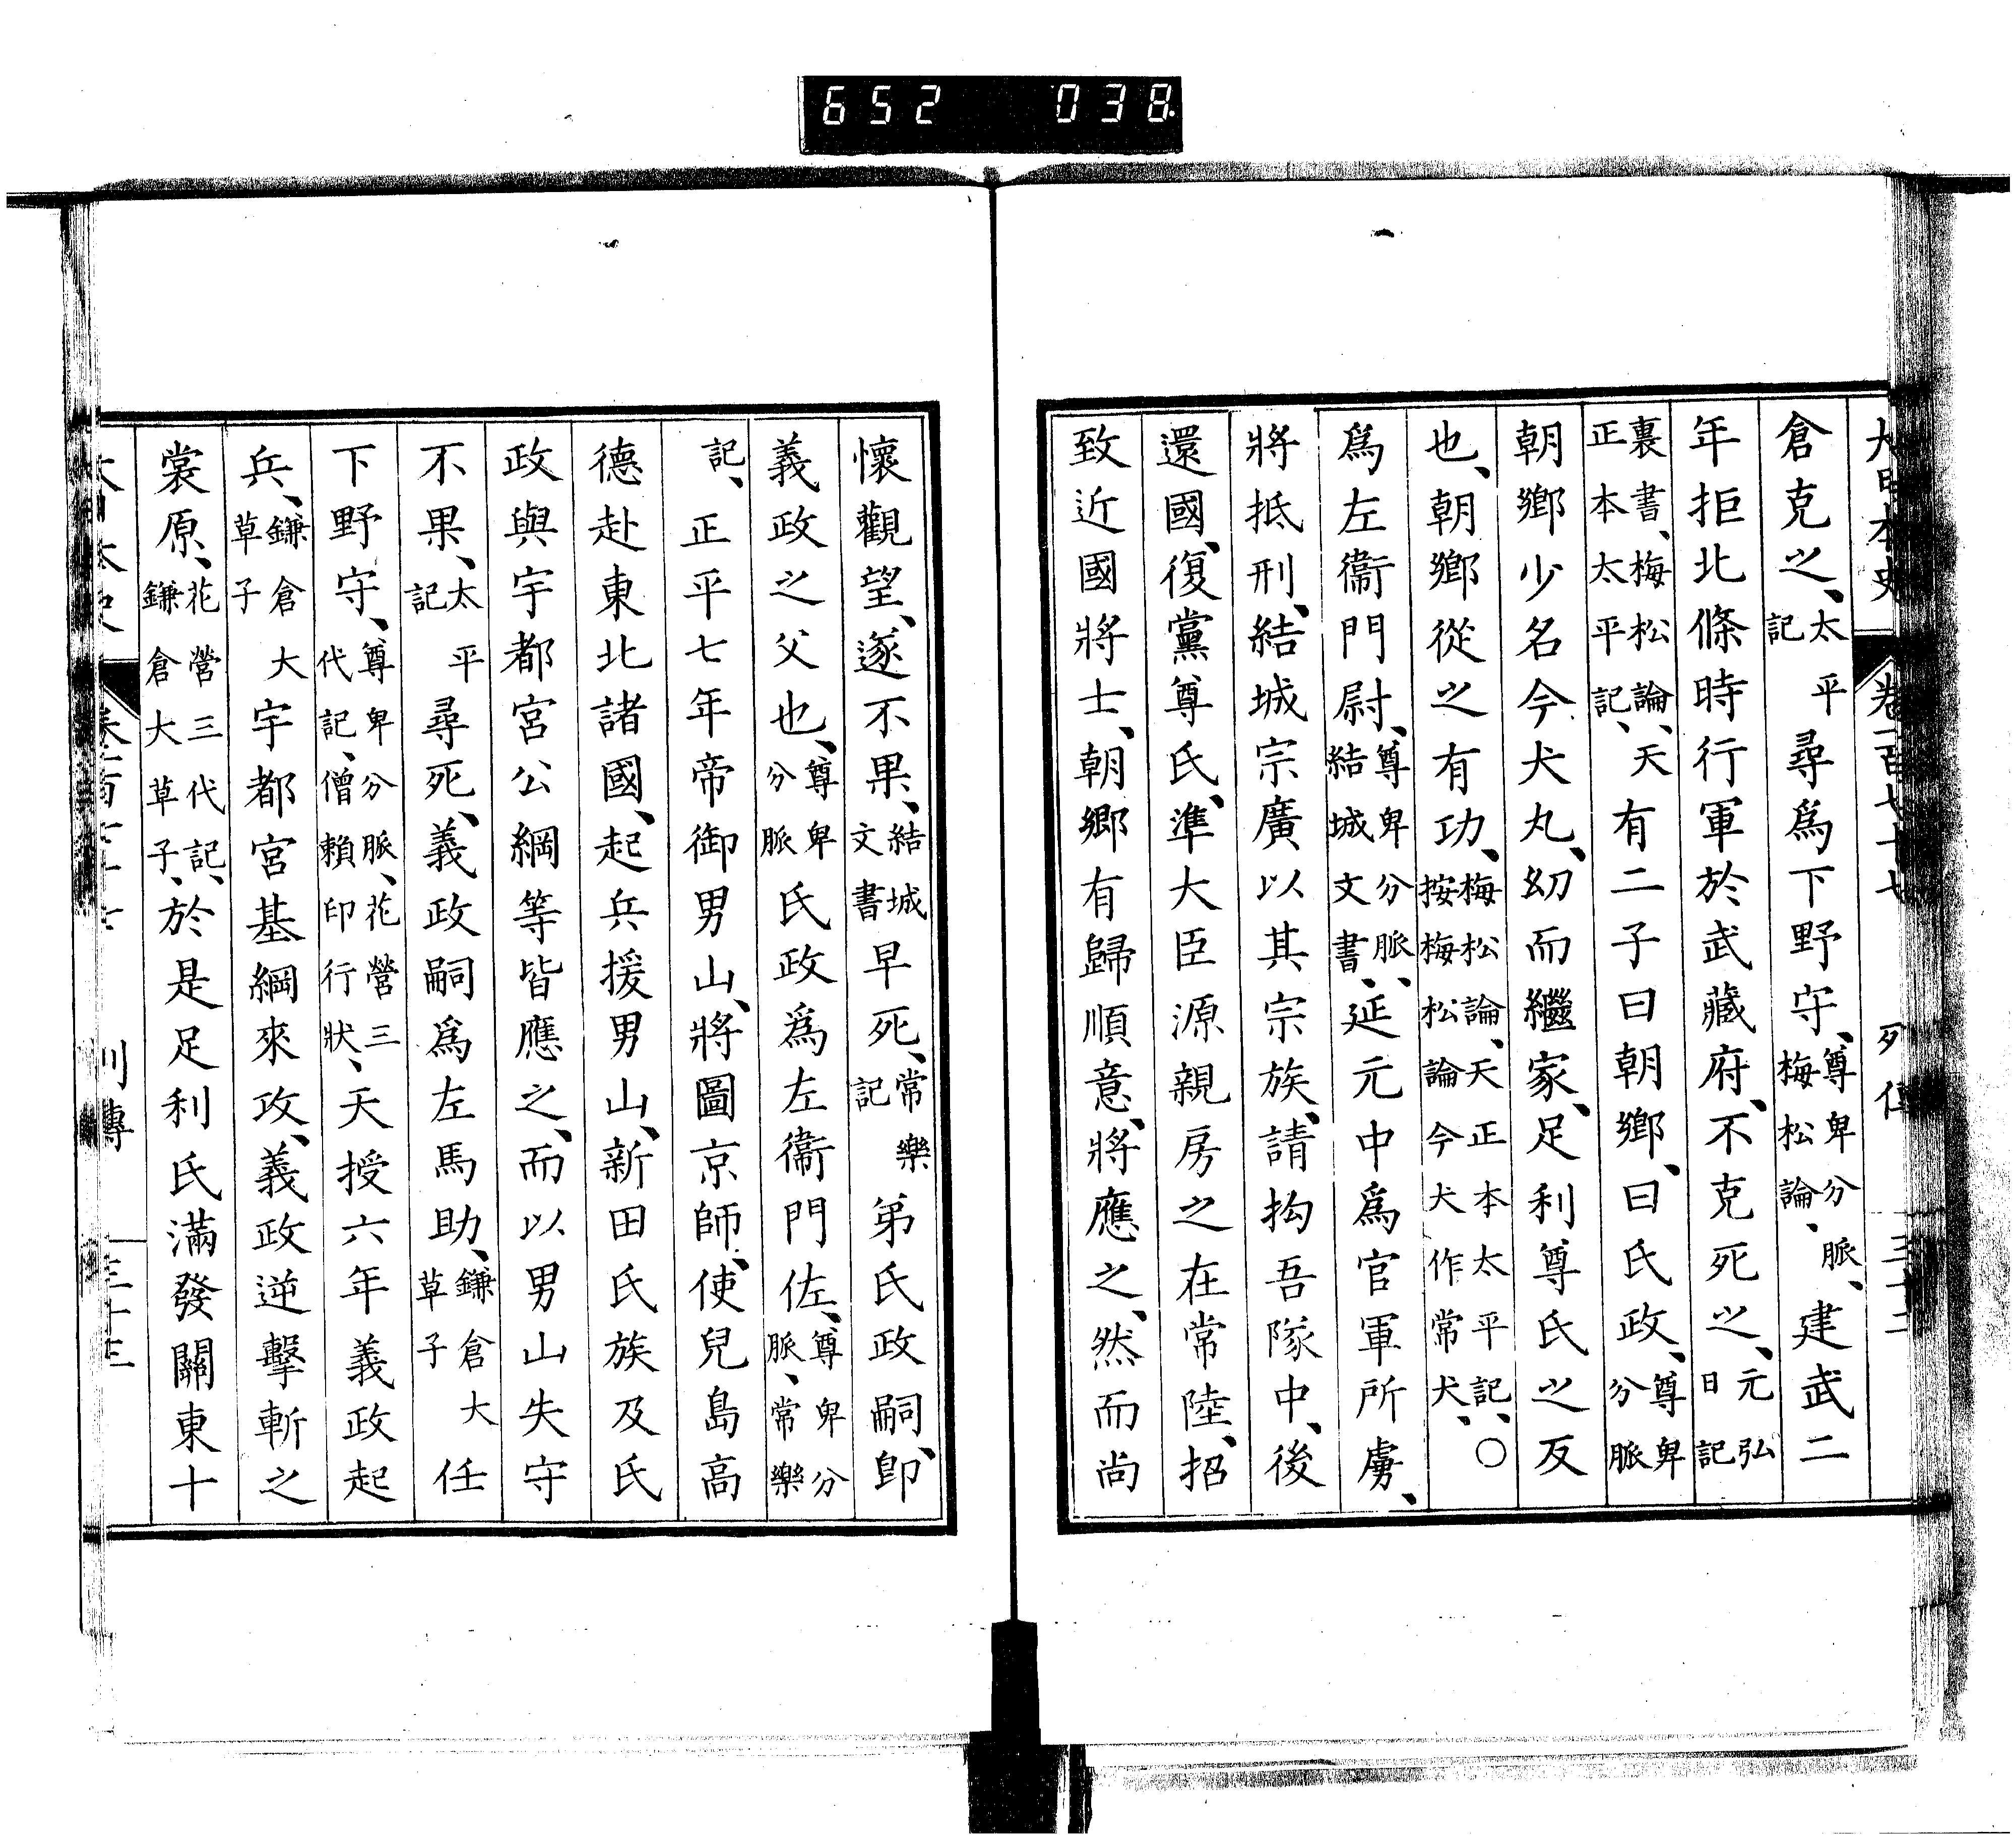 652 038
大日本史 卷一百七十七 列傳 三十二
倉克之、太平記尋爲下野守、尊卑分脈、梅松論、建武二
年拒北條時行軍於武藏府、不克死之、元弘日記
裏書、梅松論、天正本太平記、有二子曰朝鄉、曰氏政、尊卑分脈
朝鄉少名今犬丸、幼而繼家、足利尊氏之反
也、朝鄉從之有功、梅松論、天正本太平記、〇按梅松論今犬作常犬、
爲左衞門尉、尊卑分脈、結城文書、延元中爲官軍所虜、
將抵刑、結城宗廣以其宗族、請拘吾隊中、後
還國、復黨尊氏、準大臣源親房之在常陸、招
致近國將士、朝鄉有歸順意、將應之、然而尚
懷觀望、遂不果、結城文書早死、常樂記弟氏政嗣、卽
義政之父也、尊卑分脈氏政爲左衞門佐、尊卑分脈、常樂
記、正平七年帝御男山、將圖京師、使兒島高
德赴東北諸國、起兵援男山、新田氏族及氏
政與宇都宮公綱等皆應之、而以男山失守
不果、太平記尋死、義政嗣爲左馬助、鎌倉大草子任
下野守、尊卑分脈、花營三代記、僧賴印行狀、天授六年義政起
兵、鎌倉大草子宇都宮基綱來攻、義政逆擊斬之
裳原、花營三代記、鎌倉大草子、於是足利氏滿發關東十
大日本史 卷一百七十七 列傳 三十三